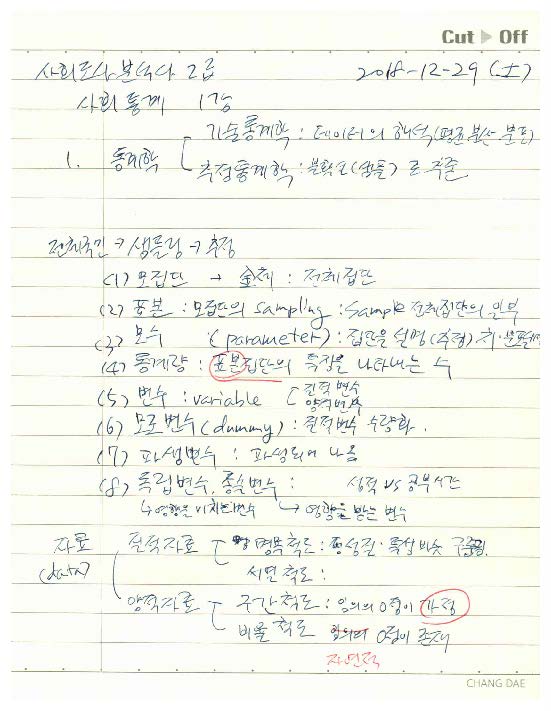 Cut ▶ Off
사회조사분석사 2급 2018-12-29 (土)
사회통계 1강
기술통계학 : 데이터의 해석(평균 분산 분포)
1. 통계학
추정통계학 : 불확실(샘플)로 추출
전체국민 → 샘플링 → 추정
(1) 모집단 → 全체 : 전체집단
(2) 표본 : 모집단의 sampling : Sample 전체집단의 일부
(3) 모수 (parameter) : 집단을 설명(추정) 치·
(4) 통계량 : 표본집단의 특징을 나타내는 수
(5) 변수 : variable 질적변수
양적변수
(6) 모조변수(dummy) : 질적변수 수량화.
(7) 파생변수 : 파생되어 나옴
(8) 독립변수, 종속변수 : 성적 vs 공부시간
↳ 영향을 미치는변수 ↳ 영향을 받는 변수
자료 질적자료 명목척도 : 성질·특성
(data) 서열척도 :
양적자료 구간척도 : 임의의 0점이 가정
비율척도 임의의 0점이 존재
자연적
CHANG DAE